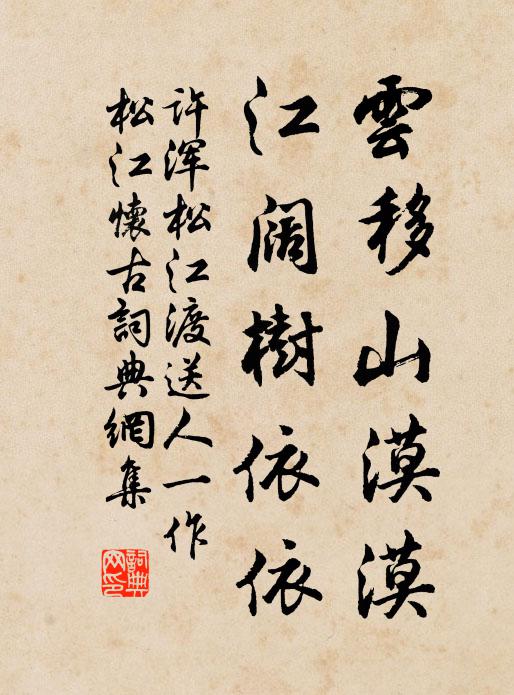 雲移山漠漠
江阔樹依依
许渾松江渡送人一作
松江懷古詞典網集
詞典网印